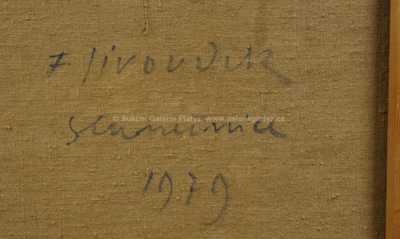 F Jiroudek
Slunečnice
© Aukční Galerie Platýz, www.galerieplatyz.cz
1979